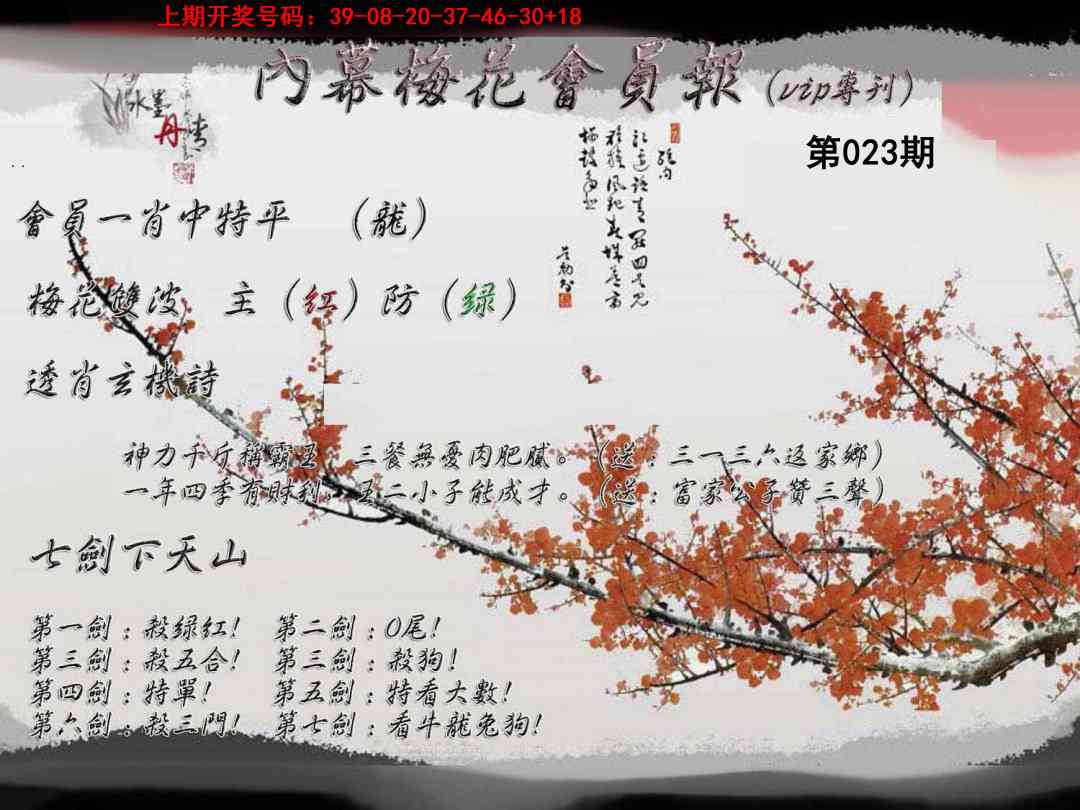 上期开奖号码：39-08-20-37-46-30+18
內幕梅花會員報（vip專刊）
水墨
丹青
第023期
會員一肖中特平 （龍）
梅花雙波 主（红）防（绿）
透肖玄機詩
神力千斤稱霸王，三餐無憂肉肥膩。（送：三一三六返家鄉）
一年四季有財利，王二小子能成才。（送：富家公子贊三聲）
七劍下天山
第一劍：殺绿红！ 第二劍：0尾！
第三劍：殺五合！ 第三劍：殺狗！
第四劍：特單！ 第五劍：特看大數！
第六劍：殺三門！ 第七劍：看牛龍兔狗！